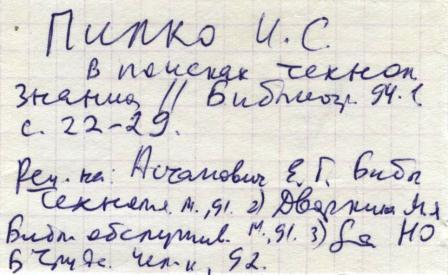 Пилко И.С.
В поисках технол
знания // Библиогр. 94.1.
с. 22-29.
Рец. на: Астапович Е.Г. Библ
технолог. М., 91. 2) Дворкина М.Я
Библ. обслужив. М., 91. 3) НО
Б Челяб., 92.